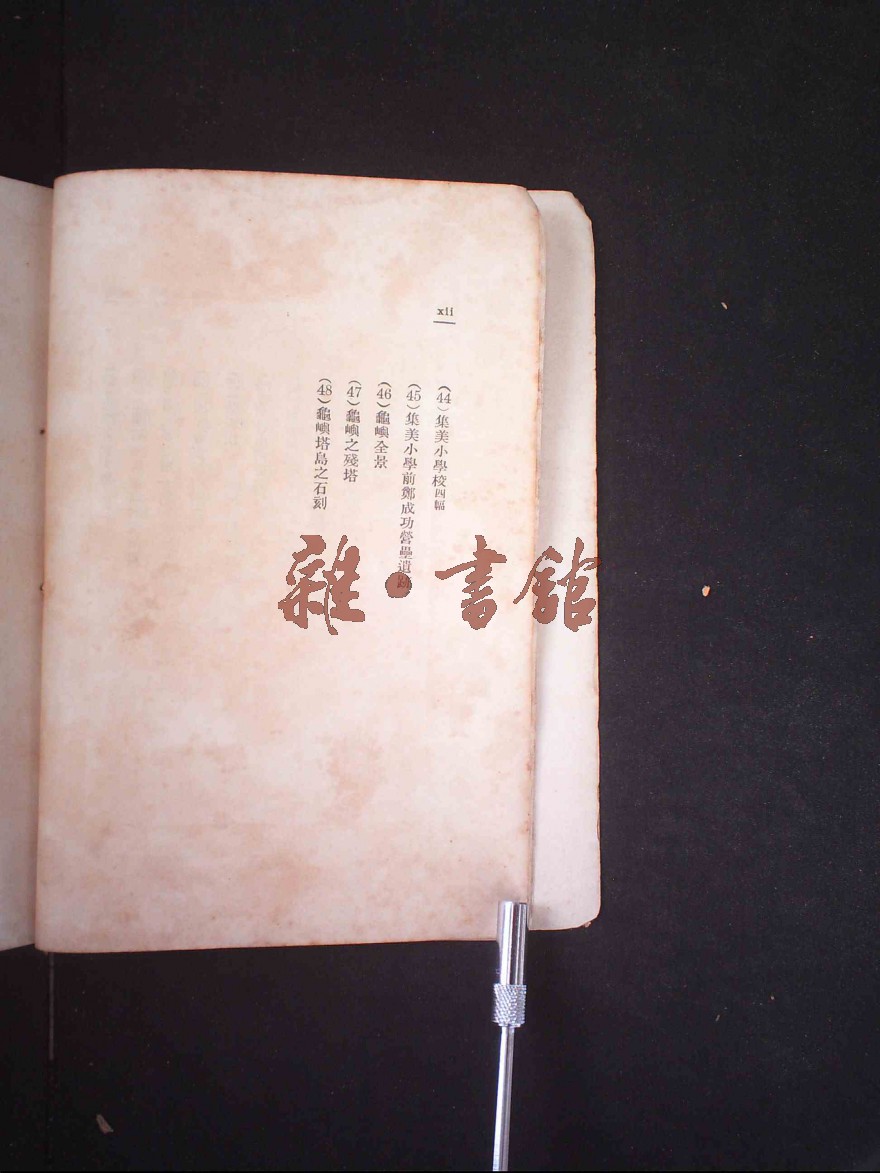 xii
(44)集美小學校四幅
(45)集美小學前鄭成功營壘遺跡
(46)龜嶼全景
(47)龜嶼之殘塔
(48)龜嶼塔島之石刻
雜·書館